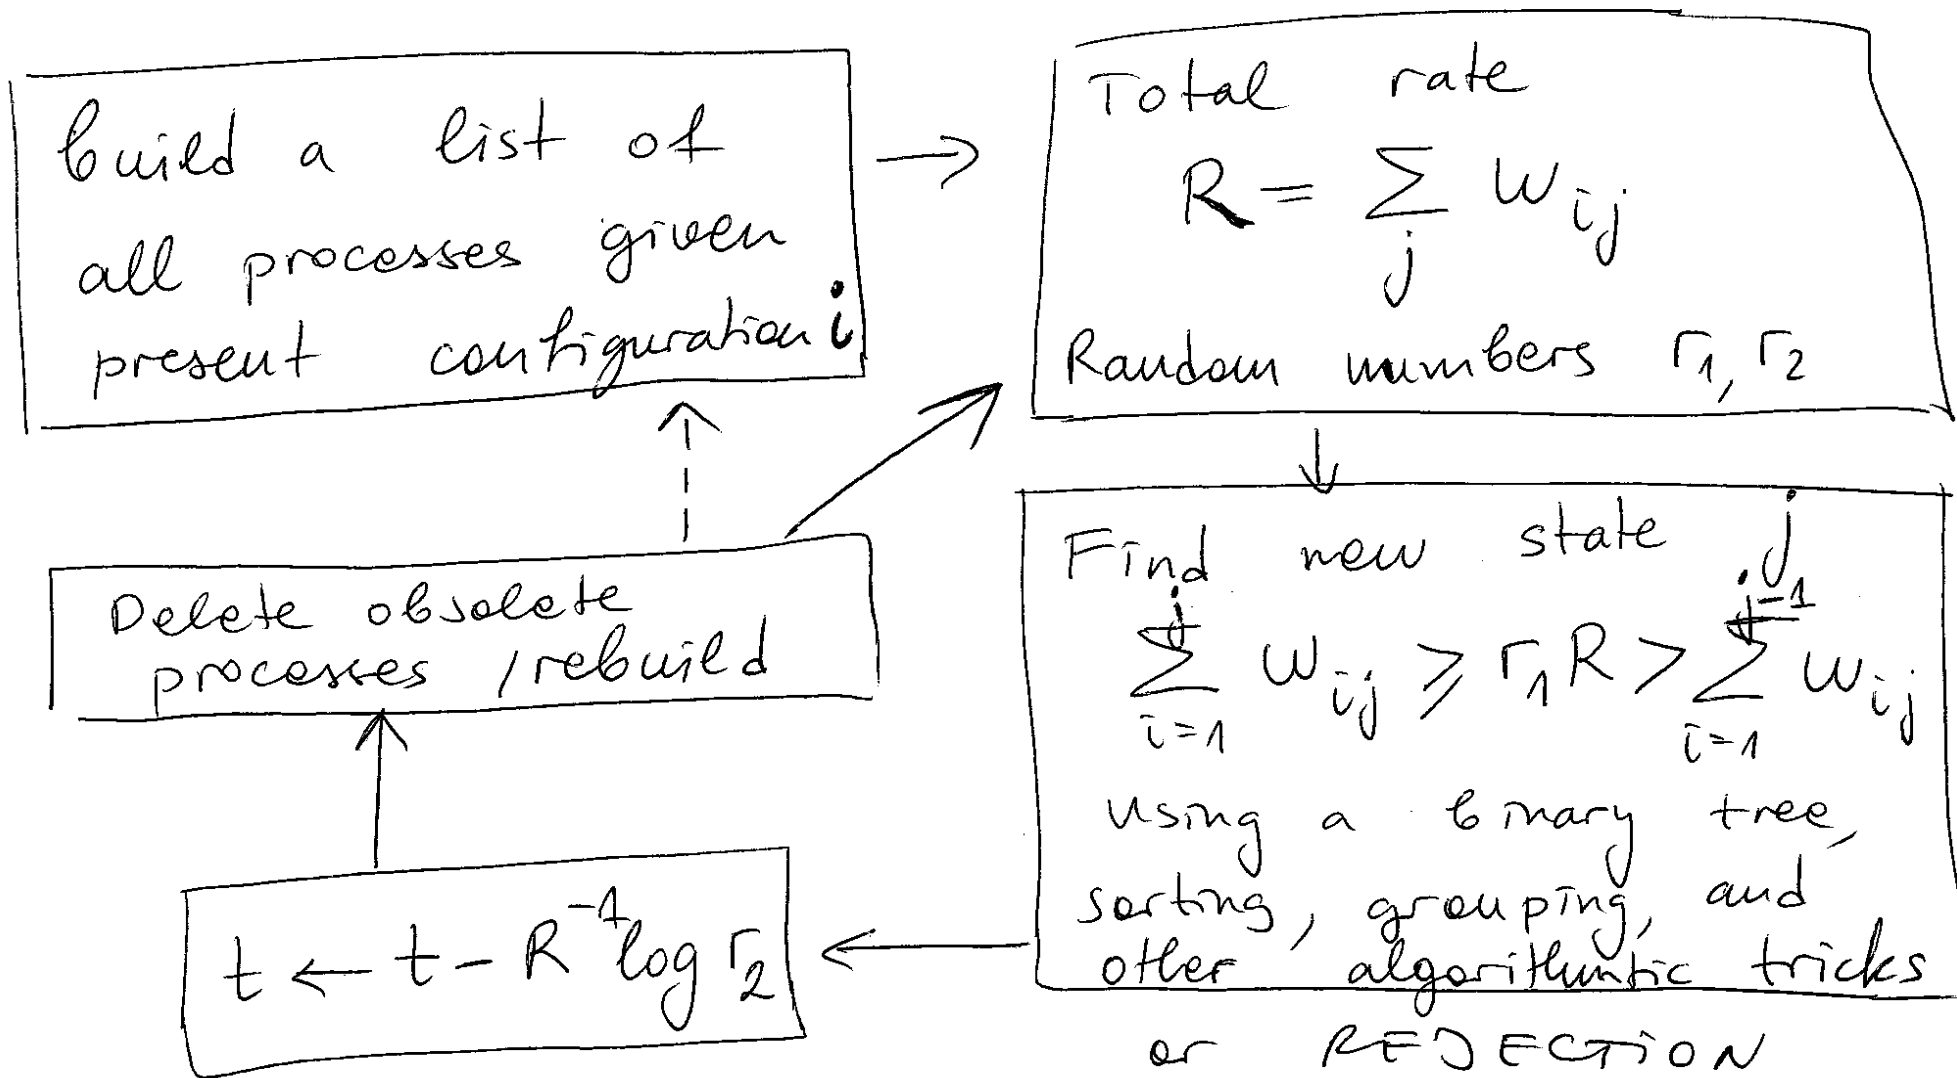 build a list of
all processes given
present configuration i
Total rate
R = ∑_j w_ij
Random numbers r₁, r₂
Find new state j
∑_{i=1}^{j} w_ij ⩾ r₁R > ∑_{i=1}^{j-1} w_ij
using a binary tree,
sorting, grouping, and
other algorithmic tricks
or REJECTION
t ← t - R⁻¹ log r₂
Delete obsolete
processes / rebuild